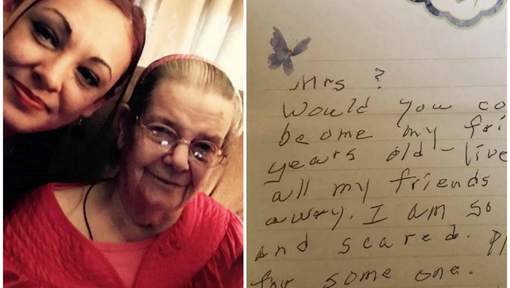 Mrs ?
Would you co
become my fri
years old - live
all my friends
away. I am so
and scared. Pl
for some one.